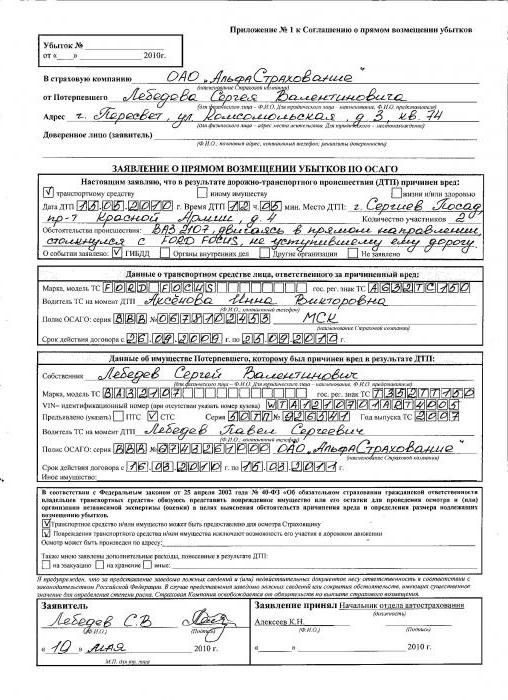 Приложение № 1 к Соглашению о прямом возмещении убытков
Убыток №
от «___» 2010г.
В страховую компанию ОАО „АльфаСтрахование"
(наименование Страховой компании)
от Потерпевшего Лебедева Сергея Валентиновича
(для физического лица – Ф.И.О. Для юридического лица – наименование, Ф.И.О. представителя)
Адрес г. Пересвет, ул. Комсомольская, д. 3, кв. 74
Доверенное лицо (заявитель)
ЗАЯВЛЕНИЕ О ПРЯМОМ ВОЗМЕЩЕНИИ УБЫТКОВ ПО ОСАГО
Настоящим заявляю, что в результате дорожно-транспортного происшествия (ДТП) причинен вред:
V транспортному средству иному имуществу жизни и/или здоровью
Дата ДТП 15.05.2010 г. Время ДТП 12 ч. 05 мин. Место ДТП: г. Сергиев Посад,
пр-т Красной Армии, д. 4 Количество участников 2
Обстоятельства происшествия: ВАЗ 2107, двигаясь в прямом направлении,
столкнулся с FORD FOCUS, не уступившему ему дорогу.
О событии заявлено: V ГИБДД Органы внутренних дел Другие организации Не заявлено
Данные о транспортном средстве лица, ответственного за причиненный вред:
Марка, модель ТС FORD FOCUS гос. рег. знак ТС А632ТС150
Водитель ТС на момент ДТП Аксёнова Инна Викторовна
(Ф.И.О., контактный телефон)
Полис ОСАГО: серия ВВВ № 0678102453 МСК
(наименование Страховой компании)
Срок действия договора с 26.09.2009 г. по 25.09.2010 г.
Данные об имуществе Потерпевшего, которому был причинен вред в результате ДТП:
Собственник Лебедев Сергей Валентинович
(для физического лица – Ф.И.О. Для юридического лица – наименование, Ф.И.О. представителя)
Марка, модель ТС ВАЗ2107 гос. рег. знак ТС
VIN– идентификационный номер (при отсутствии указать номер кузова)
Предъявлено (указать) ПТС V СТС Год выпуска ТС 2007
Водитель ТС на момент ДТП Лебедев Павел Сергеевич
(Ф.И.О., контактный телефон)
Полис ОСАГО: серия ВВВ № ОАО „АльфаСтрахование"
(наименование Страховой компании)
Срок действия договора с 16.03.2010 г. по 15.03.2011 г.
Иное имущество:
В соответствии с Федеральным законом от 25 апреля 2002 года № 40-ФЗ «Об обязательном страховании гражданской ответственности
владельцев транспортных средств» обязуюсь представить поврежденное имущество или его остатки для проведения осмотра и (или)
организации независимой экспертизы (оценки) в целях выяснения обстоятельств причинения вреда и определения размера подлежащих
возмещению убытков.
V Транспортное средство и/или имущество может быть предоставлено для осмотра Страховщику
V Повреждения транспортного средства и/или имущества исключают возможность его участия в дорожном движении
Осмотр может быть произведен по адресу:
Также мною заявлены дополнительные расходы, понесенные в результате ДТП:
на эвакуацию на хранение иные:
Я предупрежден, что за представление заведомо ложных сведений и (или) недействительных документов несу ответственность в соответствии с
законодательством Российской Федерации. В случае представления заведомо ложных сведений об обстоятельствах, имеющих существенное
значение для определения степени риска, Страховая Компания освобождается от обязательств по выплате страхового возмещения.
Заявитель
Лебедев С.В
(Ф.И.О.) (Подпись)
« 19 » мая 2010 г.
М.П. для юр. лица
Заявление принял Начальник отдела автострахования
(должность)
Алексеев К.Н.
(Ф.И.О.) (Подпись)
«___» 2010 г.